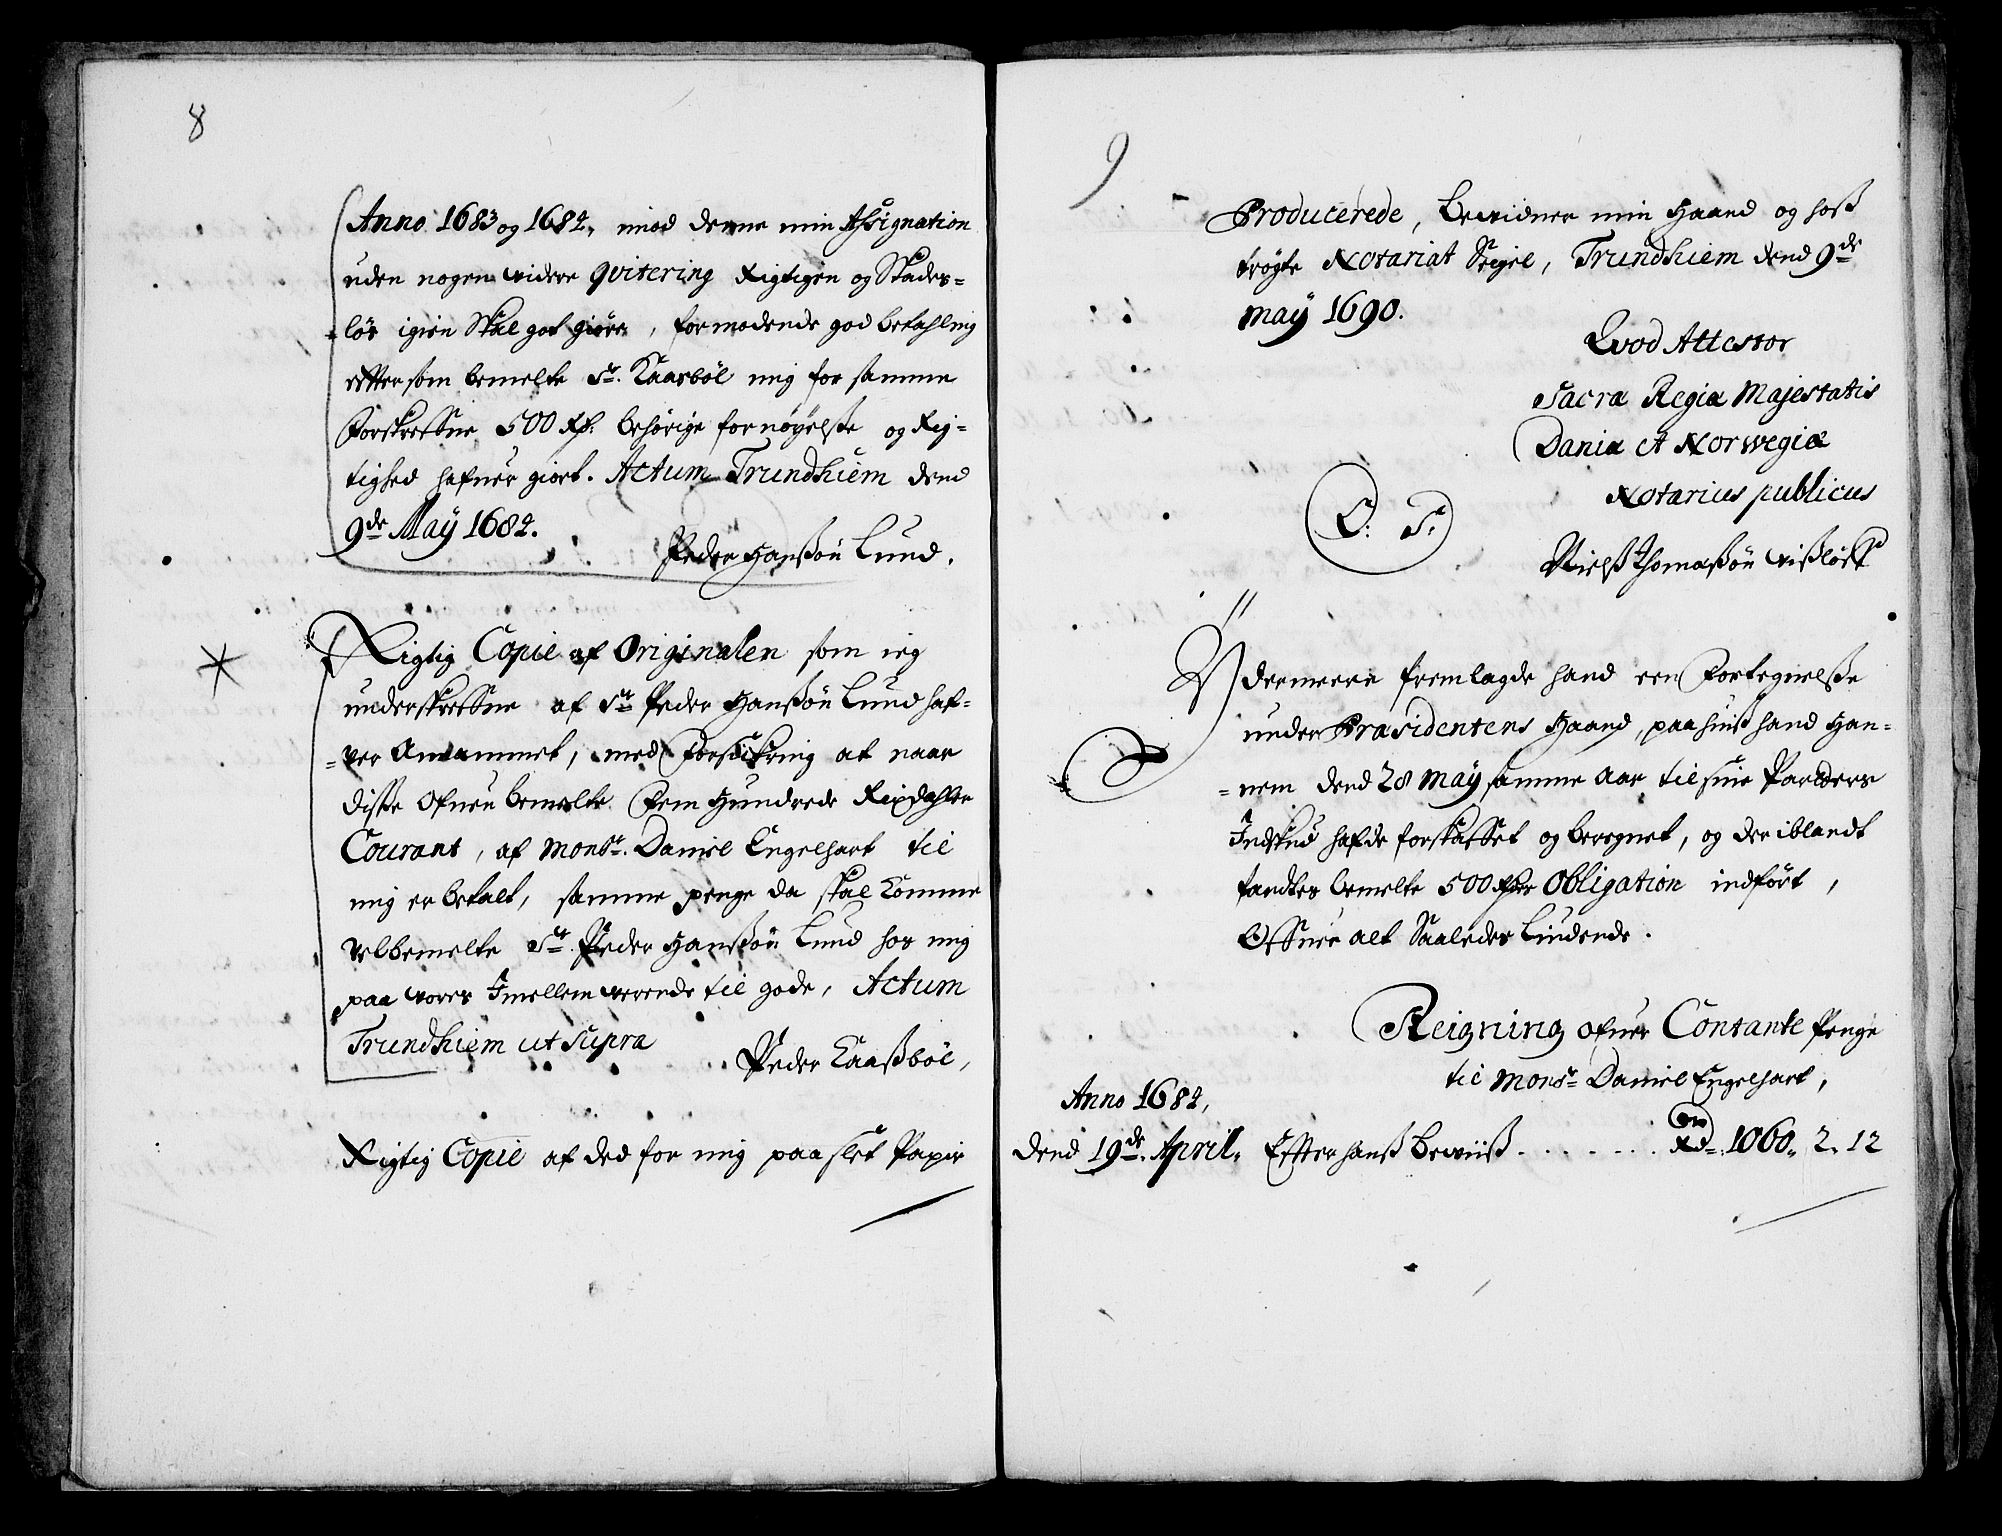 8
Anno 1683 og 1684, imod denne min Assignation
uden nogen widere qvitering Rigtigen og Skades-
løs igien Skal got giøre, formodende god betahling
effter som bemelte Sr. Kaasbøl mig for samme
Forskrefne 500 Rdr. behørige fornøyelsse og Rig-
tighed hafuer giort. Actum Trundhiem dend
9de May 1684.
Peder Hanssøn Lund.
Rigtig Copie af Originalen som ieg
underskrefne af Sr Peder Hanssøn Lund haf-
-ver Annammet, med Forsickring at naar
disse Ofuen bemelte Fem Hundrede Rixdahler
Courant, af Monsr. Daniel Engelhart til
mig er betalt, samme penge da skal komme
velbemelte Sr. Peder Hanssøn Lund hos mig
paa vores Imellem werende til gode, Actum
Trundhiem ut supra
Peder Kaassbøl,
Rigtig Copie af ded for mig paa slet Papir
9
Producerede, bewidner min Haand og hoss
trøgte Notariat Seigel, Trundhiem dend 9de
May 1690.
Qvod Attestor
Sacræ Regiæ Majestatis
Daniæ et Norwegiæ
Notarius publicus
L. S.
Nielss Thomassøn Wissløff
Ydermeere fremlagde hand een Fortegnelsse
under Præsidentens Haand, paa huiss hand Han-
-nem dend 28 May samme Aar til sine Parters
Indskud hafde forskaffet og beregnet, og der iblandt
fandtes bemelte 500 Rdr Obligation indført,
Offuer alt Saaledes liudende.
Reigning ofuer Contante Penge
til Monsr Daniel Engelhart,
Anno 1684,
dend 19de April, Effter hanss bewiiss . . . . . . . Rd. 1060. 2. 12